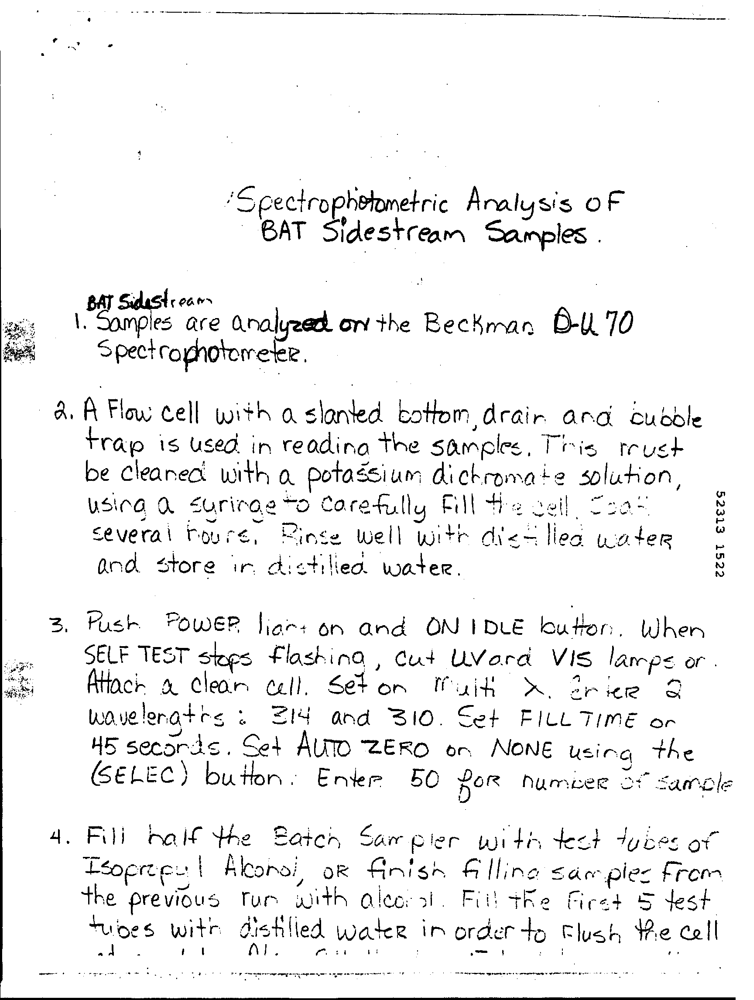 Spectrophotometric Analysis of
BAT Sidestream Samples.
BAT Sidestream
1. Samples are analyzed on the Beckman D-U 70
Spectrophotometer.
2. A Flow cell with a slanted bottom, drain and bubble
trap is used in reading the samples. This must
be cleaned with a potassium dichromate solution,
using a syringe to carefully fill the cell. Soak
several hours. Rinse well with distilled water
and store in distilled water.
52313 1522
3. Push POWER light on and ON IDLE button. When
SELF TEST stops flashing, cut UV and VIS lamps on.
Attach a clean cell. Set on Multi λ. Enter 2
wavelengths: 314 and 310. Set FILL TIME on
45 seconds. Set AUTO ZERO on NONE using the
(SELEC) button. Enter 50 for number of sample
4. Fill half the Batch Sampler with test tubes of
Isopropyl Alcohol, or finish filling samples from
the previous run with alcohol. Fill the first 5 test
tubes with distilled water in order to flush the cell